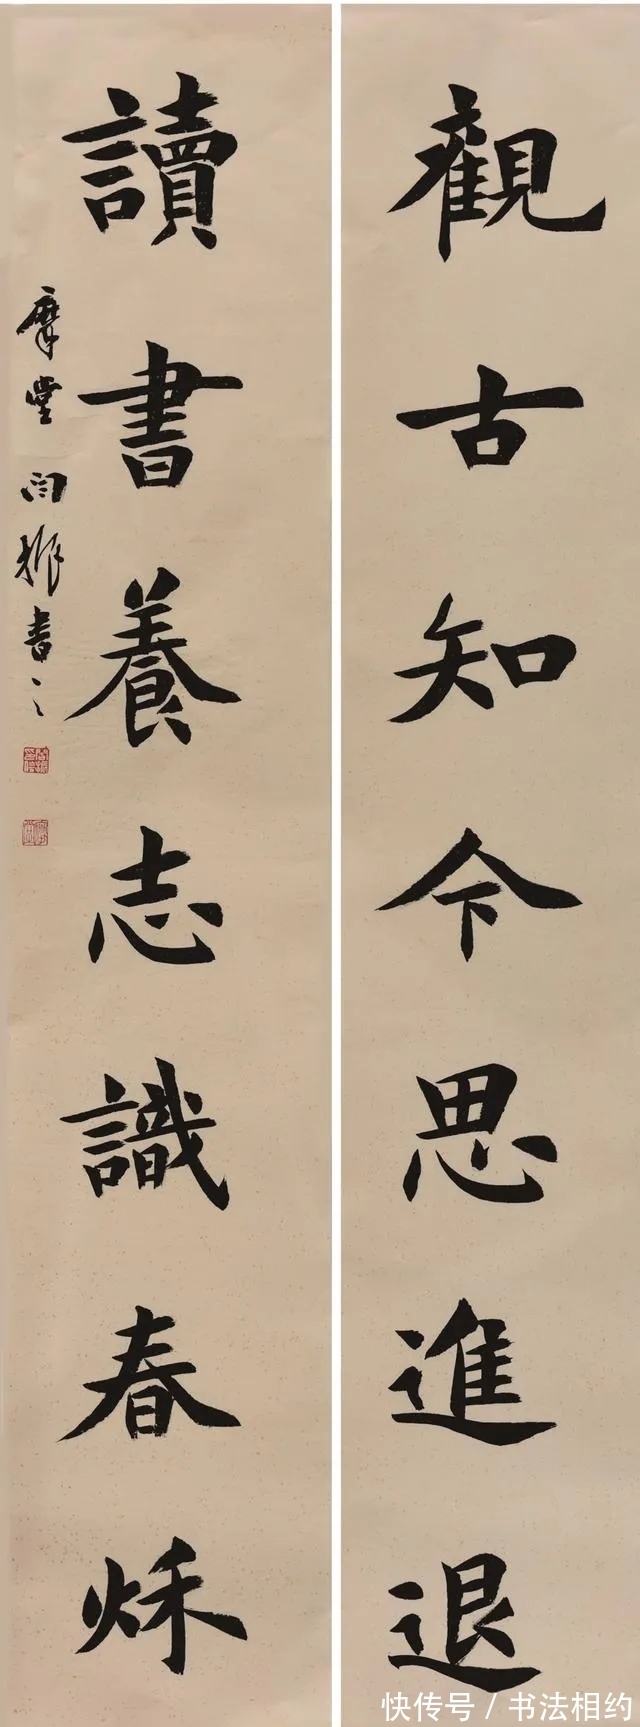 觀古知今思進退
讀書養志識春秌
摩堂闫振書之
快传号/书法相约